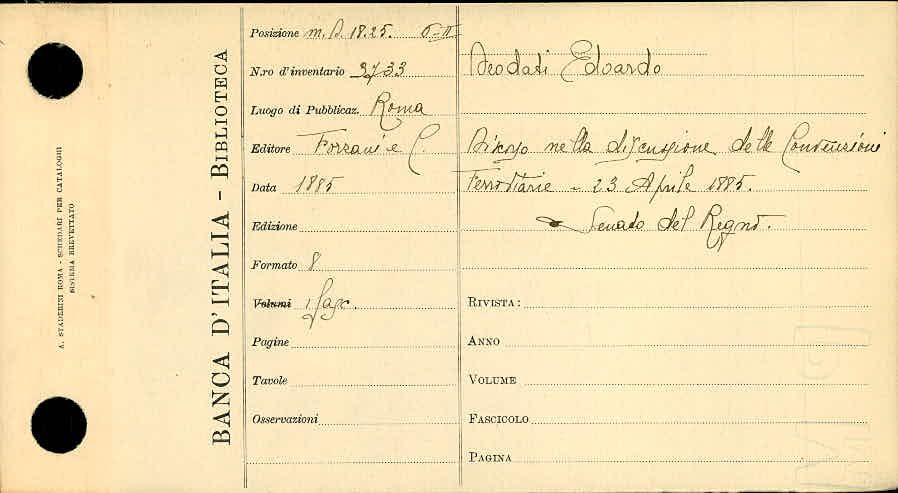 A. STADERINI ROMA - SCHEDARI PER CATALOGHI
SISTEMA BREVETTATO
BANCA D'ITALIA - BIBLIOTECA
Posizione m.S. 18.25. 6-II
N.ro d'inventario 3733
Luogo di Pubblicaz. Roma
Editore Forzani e C.
Data 1885
Edizione
Formato 8
Volumi 1 fasc.
Pagine
Tavole
Osservazioni
Deodati Edoardo
Discorso nella discussione delle Convenzioni
Ferroviarie - 23 Aprile 1885.
Senato del Regno.
RIVISTA:
ANNO
VOLUME
FASCICOLO
PAGINA